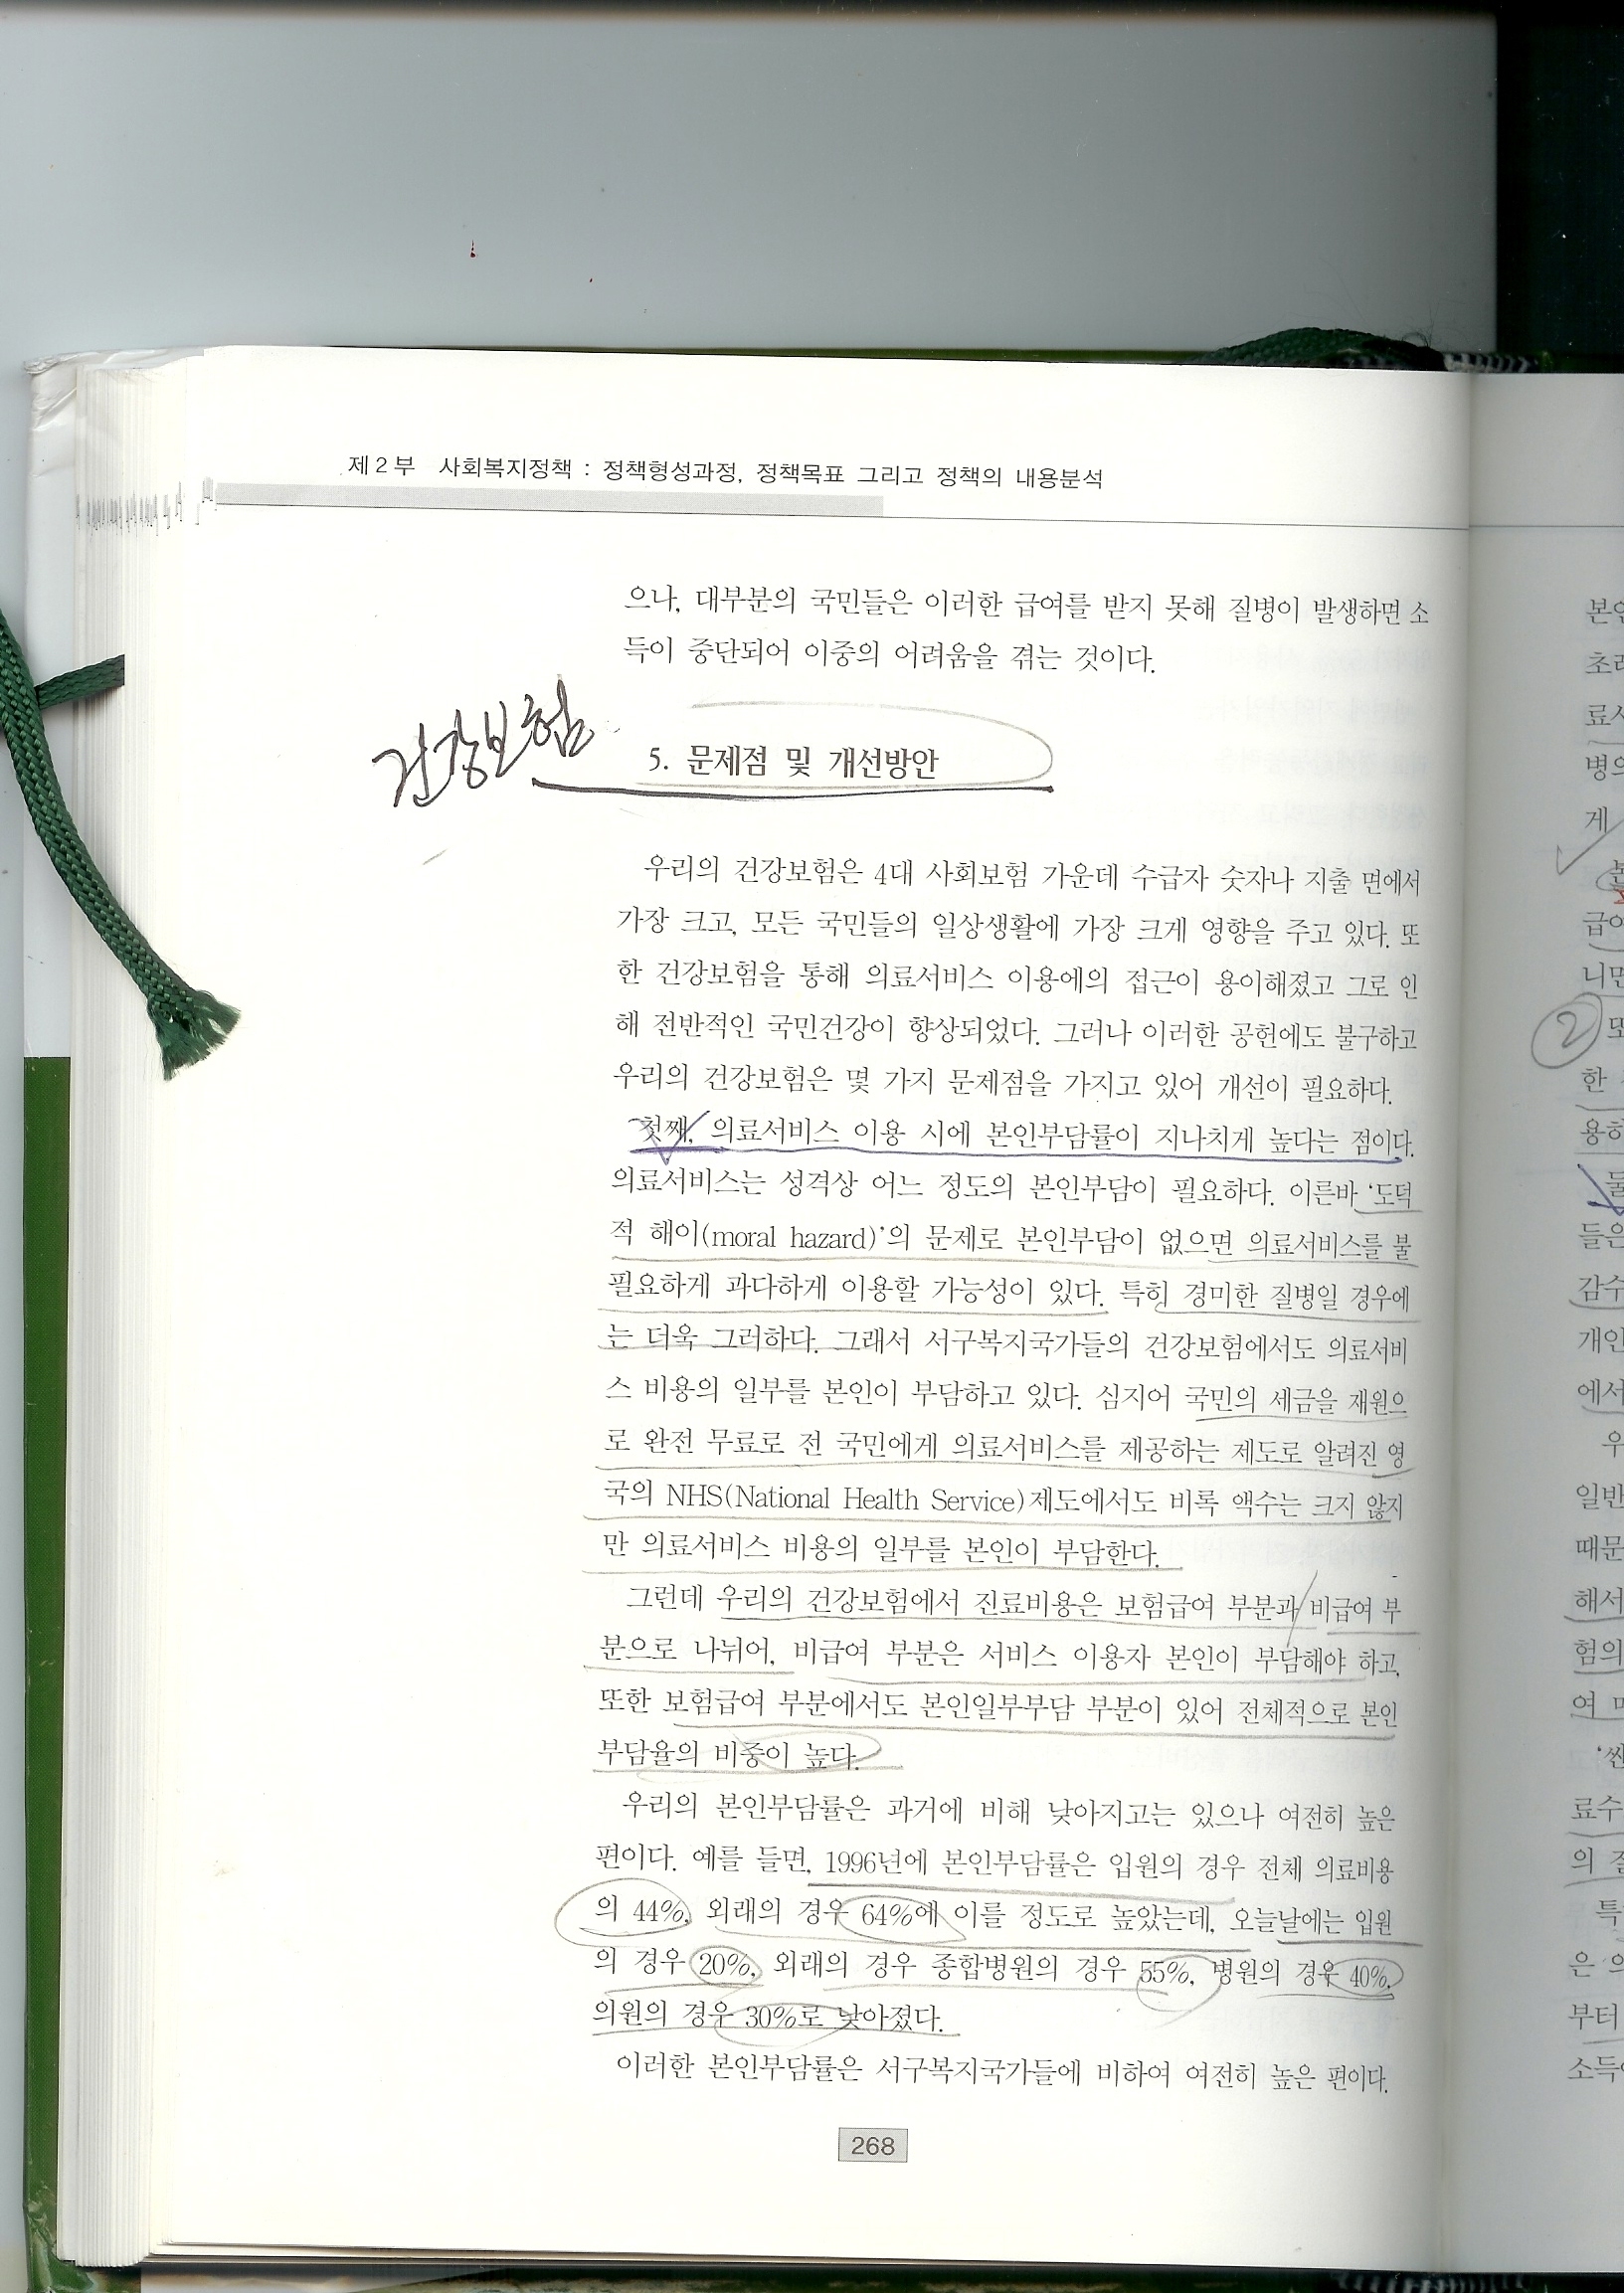 제2부 사회복지정책 : 정책형성과정, 정책목표 그리고 정책의 내용분석
으나, 대부분의 국민들은 이러한 급여를 받지 못해 질병이 발생하면 소
득이 중단되어 이중의 어려움을 겪는 것이다.
건강보험
5. 문제점 및 개선방안
우리의 건강보험은 4대 사회보험 가운데 수급자 숫자나 지출 면에서
가장 크고, 모든 국민들의 일상생활에 가장 크게 영향을 주고 있다. 또
한 건강보험을 통해 의료서비스 이용에의 접근이 용이해졌고 그로 인
해 전반적인 국민건강이 향상되었다. 그러나 이러한 공헌에도 불구하고
우리의 건강보험은 몇 가지 문제점을 가지고 있어 개선이 필요하다.
첫째, 의료서비스 이용 시에 본인부담률이 지나치게 높다는 점이다.
의료서비스는 성격상 어느 정도의 본인부담이 필요하다. 이른바 ‘도덕
적 해이(moral hazard)’의 문제로 본인부담이 없으면 의료서비스를 불
필요하게 과다하게 이용할 가능성이 있다. 특히 경미한 질병일 경우에
는 더욱 그러하다. 그래서 서구복지국가들의 건강보험에서도 의료서비
스 비용의 일부를 본인이 부담하고 있다. 심지어 국민의 세금을 재원으
로 완전 무료로 전 국민에게 의료서비스를 제공하는 제도로 알려진 영
국의 NHS(National Health Service)제도에서도 비록 액수는 크지 않지
만 의료서비스 비용의 일부를 본인이 부담한다.
그런데 우리의 건강보험에서 진료비용은 보험급여 부분과 비급여 부
분으로 나뉘어, 비급여 부분은 서비스 이용자 본인이 부담해야 하고,
또한 보험급여 부분에서도 본인일부부담 부분이 있어 전체적으로 본인
부담율의 비중이 높다.
우리의 본인부담률은 과거에 비해 낮아지고는 있으나 여전히 높은
편이다. 예를 들면, 1996년에 본인부담률은 입원의 경우 전체 의료비용
의 44%, 외래의 경우 64%에 이를 정도로 높았는데, 오늘날에는 입원
의 경우 20%, 외래의 경우 종합병원의 경우 55%, 병원의 경우 40%,
의원의 경우 30%로 낮아졌다.
이러한 본인부담률은 서구복지국가들에 비하여 여전히 높은 편이다.
268
②